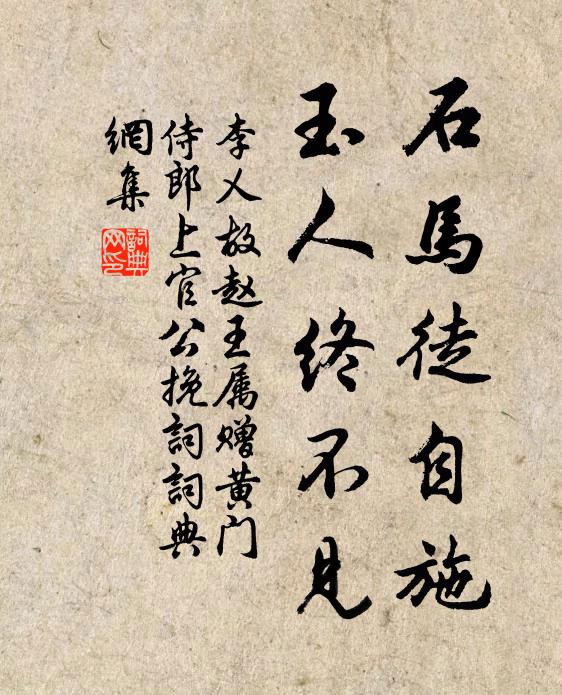 石馬徒自施
玉人終不見
李乂故赵王属赠黄门
侍郎上官公挽詞詞典
網集
詞典
网印